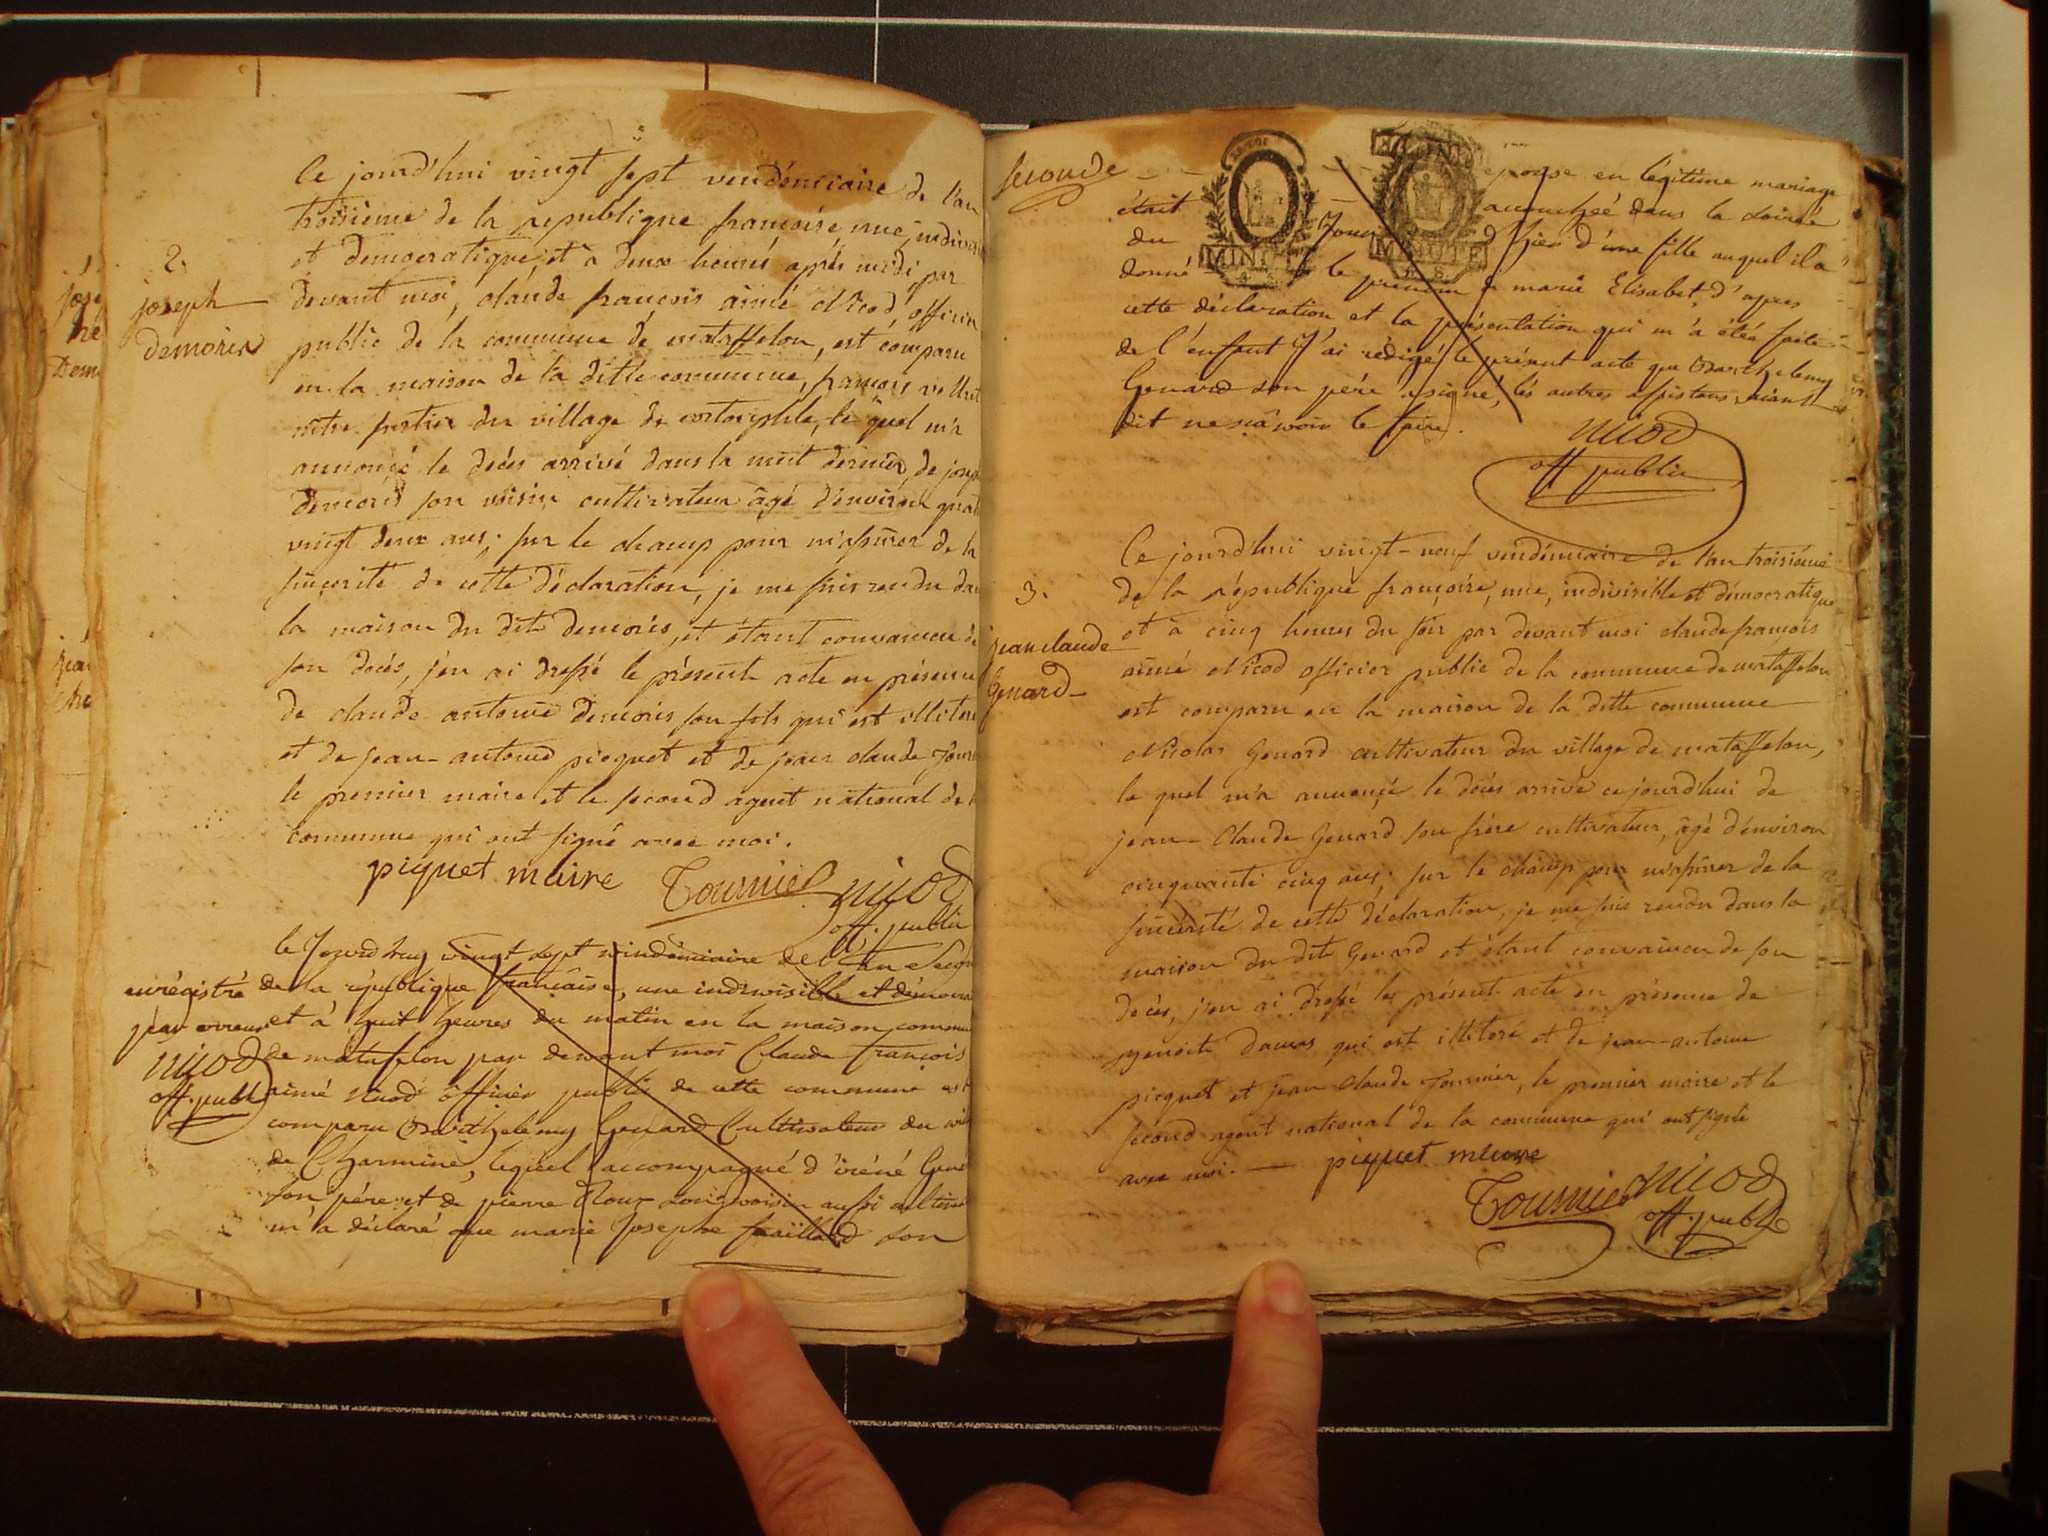 2.
joseph
Demoris
Ce jourd'hui vingt sept vendémiaire de l'an
troisième de la republique françoise une, indivis
et démocratique, et à deux heures après midi par
devant moi, claude françois aimé Nicod officier
public de la commune de mataffelon, est comparu
en la maison de la ditte commune, françois
du village de le quel m'a
annoncé le décès arrivé dans la nuit dernier, de josep
Demoris son voisin cultivateur âgé d'environ quat
vingt deux ans; sur le champ pour m'assurer de la
sincerité de cette déclaration, je me suis rendu da
la maison du dit demoris, et étant convaincu de
son decès, j'en ai dressé le présent acte en présence
de claude antoine demoris son fils qui est illiteré
et de jean-antoine picquet et de jean claude Tour
le premier maire et le second agent national de l
commune qui ont signé avec moi.
piquet maire Tournier nicod
off. public
enrégistré
par erreur
nicod
off. public
le Jourdhuy vingt sept vindémiaire de l'an Secon
de la république française, une indivisible et démocra
et à huit heures du matin en la maison commu
de matafelon par devant moi Claude françois
aimé nicod officier public de cette commune est
comparu Barthelemy Genard Cultivateur du vill
de Charmine, lequel accompagné d'iréné Gena
son père et de pierre Roux son voisin aussi cultiva
m'a déclaré que marie Josephe faillard son
seconde
épouse en légitime mariage
était accouchée dans la soirée
du Jour d'hier d'une fille auquel il a
donné le prenom de marie Elisabet, d'apres
cette déclaration et la présentation qui m'a étée faite
de l'enfant J'ai rédigé le présent acte que Barthelemy
Genard son père a signé, les autres assistans aiant
dit ne sçavoir le faire.
nicod
off public
MINUTE
MINUTE
3.
jean claude
Genard
Ce jourd'hui vingt-neuf vendémiaire de l'an troisième
de la république françoise, une, indivisible et démocratique
et à cinq heures du soir par devant moi claude françois
aimé Nicod officier public de la commune de mataffelon
est comparu en la maison de la ditte commune
Nicolas Genard cultivateur du village de mataffelon,
le quel m'a annoncé le décès arrivé ce jourd'hui de
jean-Claude Genard son frère cultivateur, âgé d'environ
cinquante cinq ans; sur le champ pour m'assurer de la
sincérité de cette déclaration, je me suis rendu dans la
maison du dit Genard et étant convaincu de son
decès, j'en ai dressé le présent acte en présence de
benoite Dumas, qui est illiteré et de jean-antoine
picquet et jean claude Tournier, le premier maire et le
second agent national de la commune qui ont signé
avec moi. piquet maire
Tournier nicod
off. public